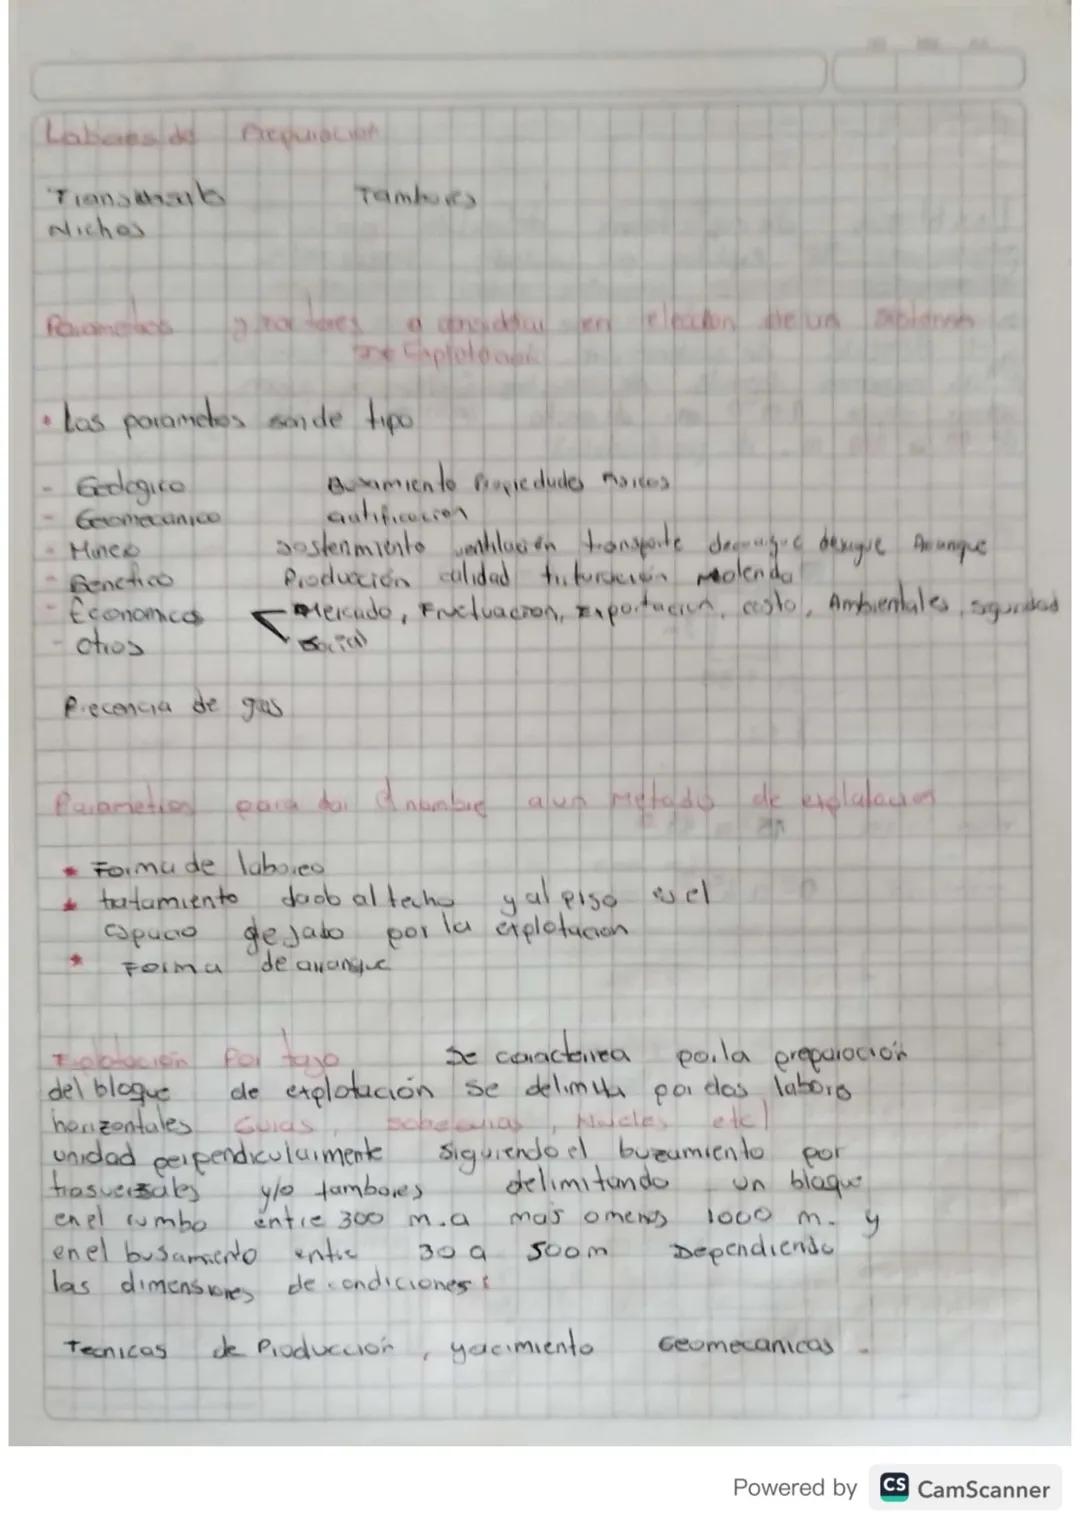 Labores de Preparación
Transversales Tambores
Nichos
Parametros y factores a considerar en eleccion de un sistema
de Explotación
• Los parametros son de tipo
- Geologico Busamiento Propiedades Fisicos
- Geomecanico
- Minero sostenimiento ventilación transporte desague Arranque
- Benefico Producción calidad trituración Molenda
- Economicos Mercado, Fructuacion, Exportacion, costo, Ambientales, seguridad
- Otros social
Precencia de gas
Parametros para dar el nombre a un metodo de explotacion
* Forma de laboreo
* tratamiento dado al techo y al piso es el
espacio dejado por la explotacion
* Forma de arranque
Explotación Por tajo Se caracteriza por la preparación
del bloque de explotación se delimita por dos labors
horizontales Guias, Niveles etc)
unidad perpendicularmente siguiendo el buzamiento por
trasversales y/o tambores delimitando un bloque
en el rumbo entre 300 m. a mas o menos 1000 m. y
en el busamiento entre 30 a 500 m Dependiendo
las dimensiones de condiciones:
Tecnicas de Producción, yacimiento Geomecanicas.
Powered by CS CamScanner